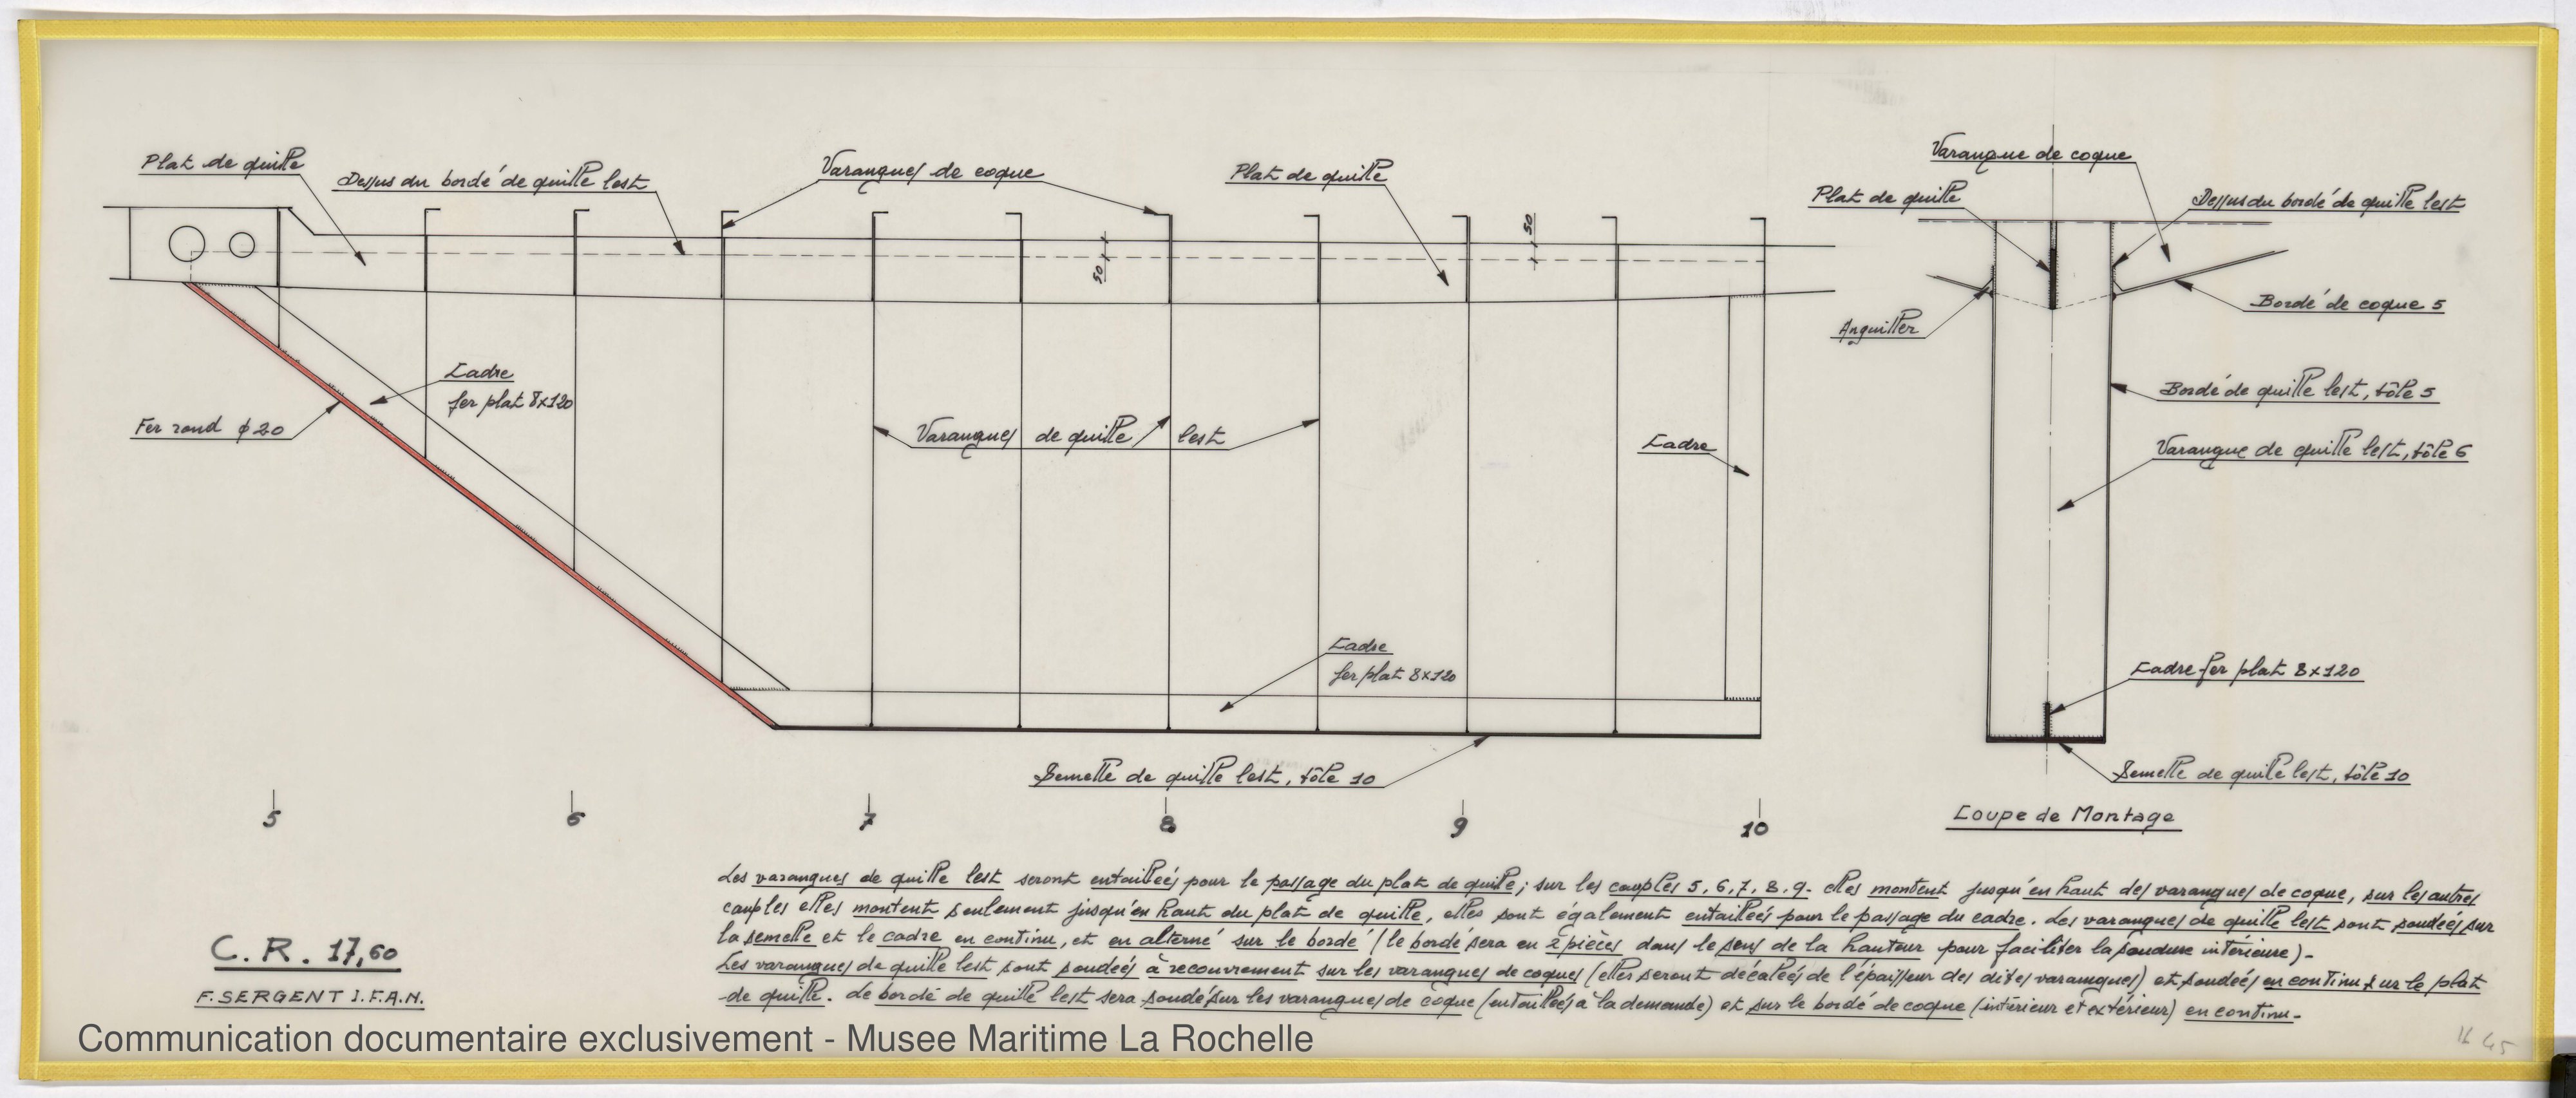 Plat de quille
Dessus du bordé de quille lest
Varangues de coque
Plat de quille
50
50
Cadre
fer plat 8x120
Fer rond ϕ 20
Varangues de quille lest
Cadre
Cadre
fer plat 8x120
Semelle de quille lest, tôle 10
5
6
7
8
9
10
Varangue de coque
Plat de quille
Dessus du bordé de quille lest
Anguiller
Bordé de coque 5
Bordé de quille lest, tôle 5
Varangue de quille lest, tôle 6
Cadre fer plat 8x120
Semelle de quille lest, tôle 10
Coupe de Montage
Les varangues de quille lest seront entaillées pour le passage du plat de quille; sur les couples 5, 6, 7, 8, 9. elles montent jusqu'en haut des varangues de coque, sur les autres
couples elles montent seulement jusqu'en haut du plat de quille, elles sont également entaillées pour le passage du cadre. Les varangues de quille lest sont soudées sur
la semelle et le cadre en continu, et en alterné sur le bordé (le bordé sera en 2 pièces dans le sens de la hauteur pour faciliter la soudure intérieure).
Les varangues de quille lest sont soudées à recouvrement sur les varangues de coques (elles seront décalées de l'épaisseur des dites varangues) et soudées en continu sur le plat
de quille. Le bordé de quille lest sera soudé sur les varangues de coque (entaillées à la demande) et sur le bordé de coque (intérieur et extérieur) en continu.
C. R. 17,60
F. SERGENT I.F.A.N.
Communication documentaire exclusivement - Musee Maritime La Rochelle